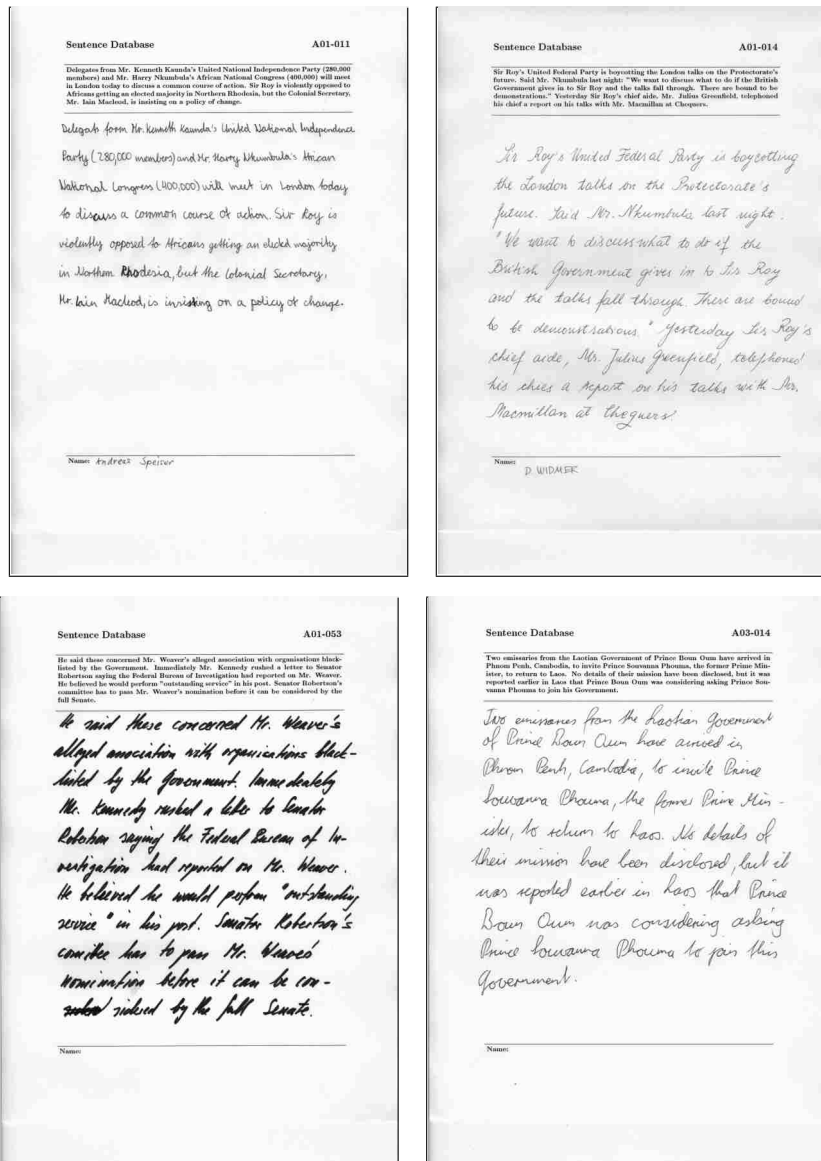 Sentence Database A01-011
Delegates from Mr. Kenneth Kaunda's United National Independence Party (280,000
members) and Mr. Harry Nkumbula's African National Congress (400,000) will meet
in London today to discuss a common course of action. Sir Roy is violently opposed to
Africans getting an elected majority in Northern Rhodesia, but the Colonial Secretary,
Mr. Iain Macleod, is insisting on a policy of change.
Delegats form Mr. Kenneth Kaunda's United National Independence
Party (280,000 members) and Mr. Harry Nkumbula's African
National Congress (400,000) will meet in London today
to discuss a common course of action. Sir Roy is
violently opposed to Africans getting an elected majority
in Northern Rhodesia, but the Colonial Secretary,
Mr. Iain Macleod, is insisting on a policy of change.
Name: Andreas Speiser
Sentence Database A01-014
Sir Roy's United Federal Party is boycotting the London talks on the Protectorate's
future. Said Mr. Nkumbula last night: "We want to discuss what to do if the British
Government gives in to Sir Roy and the talks fall through. There are bound to be
demonstrations." Yesterday Sir Roy's chief aide, Mr. Julius Greenfield, telephoned
his chief a report on his talks with Mr. Macmillan at Chequers.
Sir Roy's United Federal Party is boycotting
the London talks on the Protectorate's
future. Said Mr. Nkumbula last night.
"We want to discuss what to do if the
British Government gives in to Sir Roy
and the talks fall through. There are bound
to be demonstrations." Yesterday Sir Roy's
chief aide, Mr. Julius Greenfield, telephoned
his chies a report on his talks with Mr.
Macmillan at Chequers.
Name: D. WIDMER
Sentence Database A01-053
He said these concerned Mr. Weaver's alleged association with organisations black-
listed by the Government. Immediately Mr. Kennedy rushed a letter to Senator
Robertson saying the Federal Bureau of Investigation had reported on Mr. Weaver.
He believed he would perform "outstanding service" in his post. Senator Robertson's
committee has to pass Mr. Weaver's nomination before it can be considered by the
full Senate.
He said these concerned Mr. Weaver's
alleged association with organisations black-
listed by the Government. Immedeately
Mr. Kennedy rushed a letter to Senator
Robertson saying the Federal Bureau of In-
vestigation had reported on Mr. Weaver.
He believed he would perform "outstanding
service" in his post. Senator Robertson's
comitee has to pass Mr. Weaver's
nomination before it can be con-
sidered by the full Senate.
Name:
Sentence Database A03-014
Two emissaries from the Laotian Government of Prince Boun Oum have arrived in
Phnom Penh, Cambodia, to invite Prince Souvanna Phouma, the former Prime Min-
ister, to return to Laos. No details of their mission have been disclosed, but it was
reported earlier in Laos that Prince Boun Oum was considering asking Prince Sou-
vanna Phouma to join his Government.
Two emissaries from the Laotian Government
of Prince Boun Oum have arrived in
Phnom Penh, Cambodia, to invite Prince
Souvanna Phouma, the former Prime Min-
ister, to return to Laos. No details of
their mission have been disclosed, but it
was reported earlier in Laos that Prince
Boun Oum was considering asking
Prince Souvanna Phouma to join this
Government.
Name: